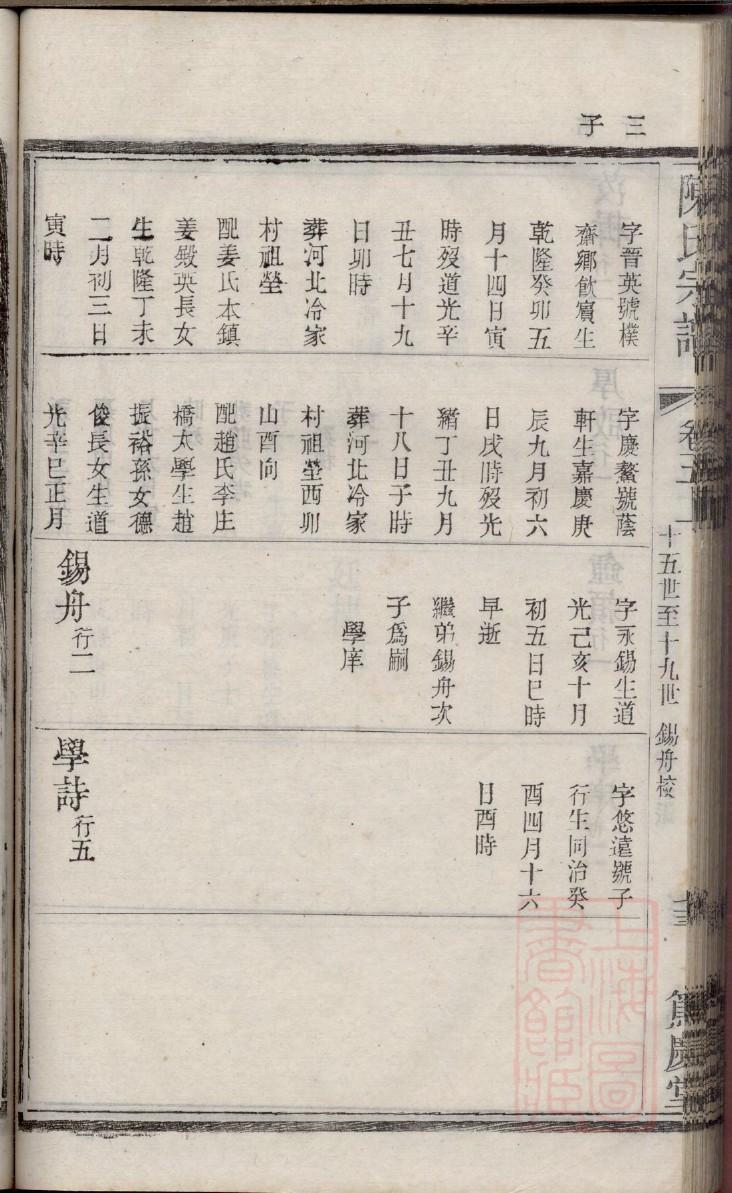 三子
陳氏宗譜
卷五
十五世至十九世
錫舟校
篤慶堂
字晋英號樸
齋鄉飲賓生
乾隆癸卯五
月十四日寅
時歿道光辛
丑七月十九
日卯時
葬河北冷家
村祖塋
配姜氏本鎮
姜毅英長女
生乾隆丁未
二月初三日
寅時
字慶鰲號蔭
軒生嘉慶庚
辰九月初六
日戌時歿光
緒丁丑九月
十八日子時
葬河北冷家
村祖塋酉卯
山酉向
配趙氏李庄
橋太學生趙
振裕孫女德
俊長女生道
光辛巳正月
字永錫生道
光己亥十月
初五日巳時
早逝
繼弟錫舟次
子爲嗣
學庠
錫舟行二
字悠遠號子
行生同治癸
酉四月十六
日酉時
學詩行五
上海圖
書館